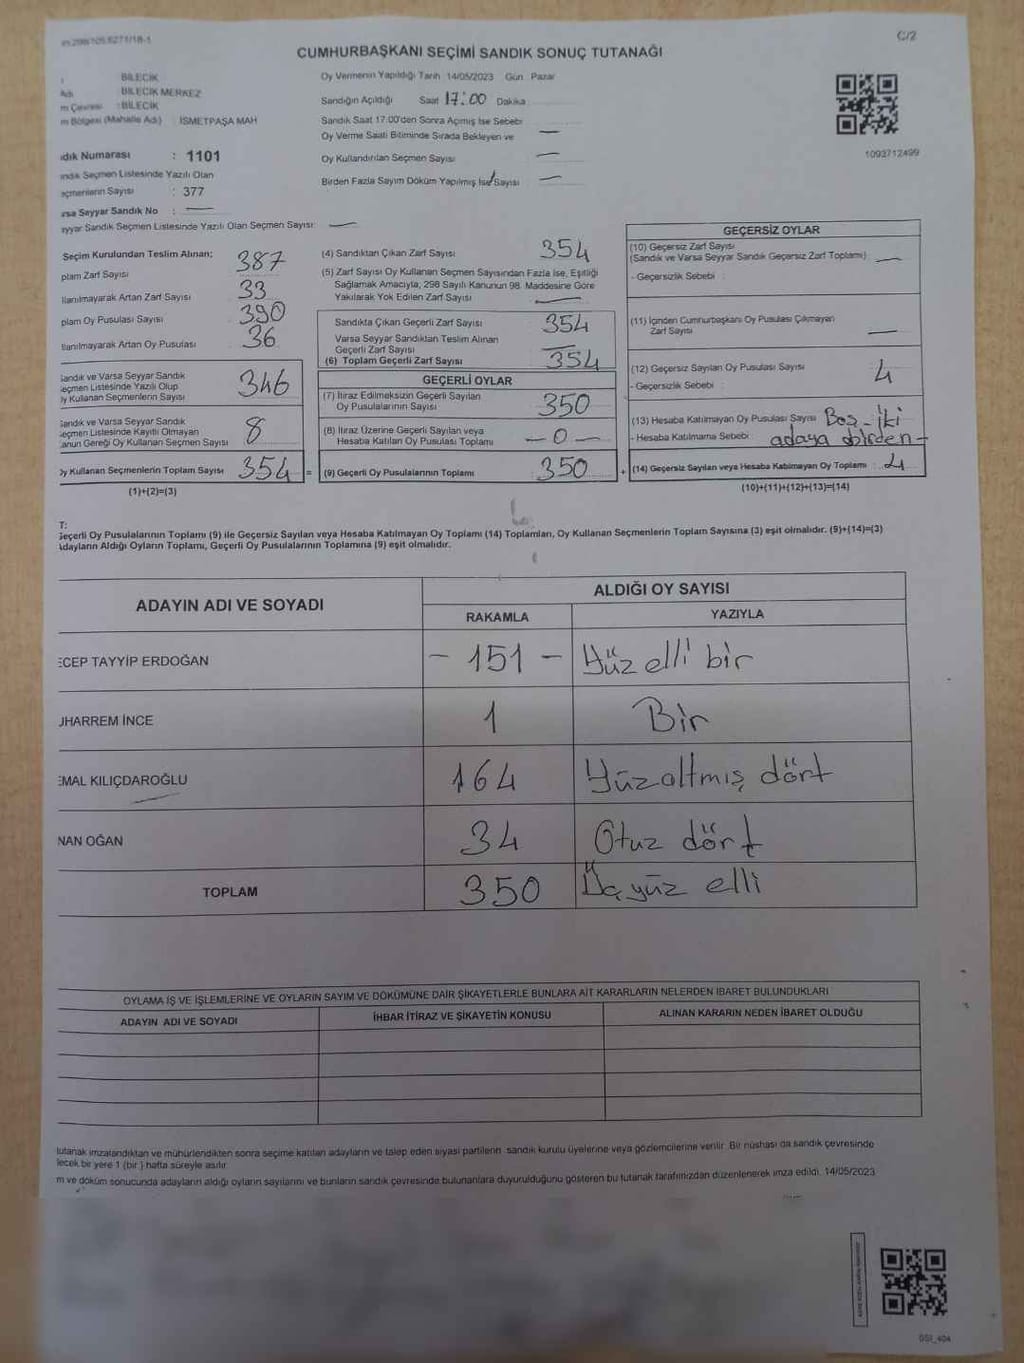 C/2
CUMHURBAŞKANI SEÇİMİ SANDIK SONUÇ TUTANAĞI
BİLECİK
BİLECİK MERKEZ
m Çevresi : BİLECİK
m Bölgesi (Mahalle Adı) : İSMETPAŞA MAH
Oy Vermenin Yapıldığı Tarih 14/05/2023 Gün Pazar
Sandığın Açıldığı Saat 17:00 Dakika
Sandık Saat 17:00'den Sonra Açmış İse Sebebi
Oy Verme Saati Bitiminde Sırada Bekleyen ve —
Oy Kullandırılan Seçmen Sayısı —
Birden Fazla Sayım Döküm Yapılmış İse Sayısı —
1093712499
ndık Numarası : 1101
ındık Seçmen Listesinde Yazılı Olan
eçmenlerin Sayısı : 377
rsa Seyyar Sandık No : —
eyyar Sandık Seçmen Listesinde Yazılı Olan Seçmen Sayısı: —
Seçim Kurulundan Teslim Alınan;
plam Zarf Sayısı 387
llanılmayarak Artan Zarf Sayısı 33
plam Oy Pusulası Sayısı 390
llanılmayarak Artan Oy Pusulası 36
Sandık ve Varsa Seyyar Sandık
eçmen Listesinde Yazılı Olup
y Kullanan Seçmenlerin Sayısı 346
Sandık ve Varsa Seyyar Sandık
eçmen Listesinde Kayıtlı Olmayan
anun Gereği Oy Kullanan Seçmen Sayısı 8
Oy Kullanan Seçmenlerin Toplam Sayısı 354 =
(1)+(2)=(3)
(4) Sandıktan Çıkan Zarf Sayısı 354
(5) Zarf Sayısı Oy Kullanan Seçmen Sayısından Fazla İse, Eşitliği
Sağlamak Amacıyla, 298 Sayılı Kanunun 98. Maddesine Göre
Yakılarak Yok Edilen Zarf Sayısı —
Sandıkta Çıkan Geçerli Zarf Sayısı 354
Varsa Seyyar Sandıktan Teslim Alınan
Geçerli Zarf Sayısı —
(6) Toplam Geçerli Zarf Sayısı 354
GEÇERLİ OYLAR
(7) İtiraz Edilmeksizin Geçerli Sayılan
Oy Pusulalarının Sayısı 350
(8) İtiraz Üzerine Geçerli Sayılan veya
Hesaba Katılan Oy Pusulası Toplamı — 0 —
(9) Geçerli Oy Pusulalarının Toplamı 350 +
GEÇERSİZ OYLAR
(10) Geçersiz Zarf Sayısı
(Sandık ve Varsa Seyyar Sandık Geçersiz Zarf Toplamı) —
- Geçersizlik Sebebi :
(11) İçinden Cumhurbaşkanı Oy Pusulası Çıkmayan
Zarf Sayısı —
(12) Geçersiz Sayılan Oy Pusulası Sayısı 4
- Geçersizlik Sebebi :
(13) Hesaba Katılmayan Oy Pusulası Sayısı Boş - iki
- Hesaba Katılmama Sebebi : adaya birden
(14) Geçersiz Sayılan veya Hesaba Katılmayan Oy Toplamı : 4
(10)+(11)+(12)+(13)=(14)
T:
Geçerli Oy Pusulalarının Toplamı (9) ile Geçersiz Sayılan veya Hesaba Katılmayan Oy Toplamı (14) Toplamları, Oy Kullanan Seçmenlerin Toplam Sayısına (3) eşit olmalıdır. (9)+(14)=(3)
Adayların Aldığı Oyların Toplamı, Geçerli Oy Pusulalarının Toplamına (9) eşit olmalıdır.
ADAYIN ADI VE SOYADI
ALDIĞI OY SAYISI
RAKAMLA YAZIYLA
ECEP TAYYİP ERDOĞAN - 151 - Yüz elli bir
UHARREM İNCE 1 Bir
EMAL KILIÇDAROĞLU 164 Yüzaltmış dört
NAN OĞAN 34 Otuz dört
TOPLAM 350 Üçyüz elli
OYLAMA İŞ VE İŞLEMLERİNE VE OYLARIN SAYIM VE DÖKÜMÜNE DAİR ŞİKAYETLERLE BUNLARA AİT KARARLARIN NELERDEN İBARET BULUNDUKLARI
ADAYIN ADI VE SOYADI İHBAR İTİRAZ VE ŞİKAYETİN KONUSU ALINAN KARARIN NEDEN İBARET OLDUĞU
tutanak imzalandıktan ve mühürlendikten sonra seçime katılan adayların ve talep eden siyasi partilerin sandık kurulu üyelerine veya gözlemcilerine verilir. Bir nüshası da sandık çevresinde
lecek bir yere 1 (bir ) hafta süreyle asılır.
m ve döküm sonucunda adayların aldığı oyların sayılarını ve bunların sandık çevresinde bulunanlara duyurulduğunu gösteren bu tutanak tarafımızdan düzenlenerek imza edildi. 14/05/2023